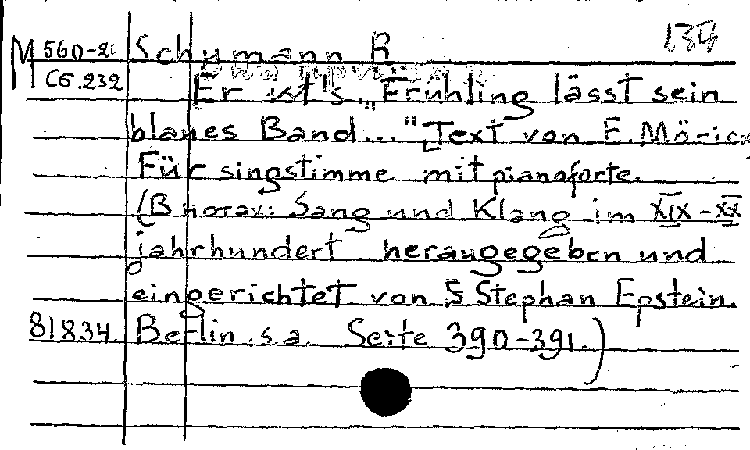 M 560-21 Schumann R. 134
Сб.232
Er ist's „Frühling lässt sein
blaues Band..." Text von E. Möric
Für singstimme mit pianoforte.
(В нотах: Sang und Klang im XIX-XX
jahrhundert heraugegeben und
eingerichtet von S Stephan Epstein.
81834 Berlin s.a. Seite 390-391.)